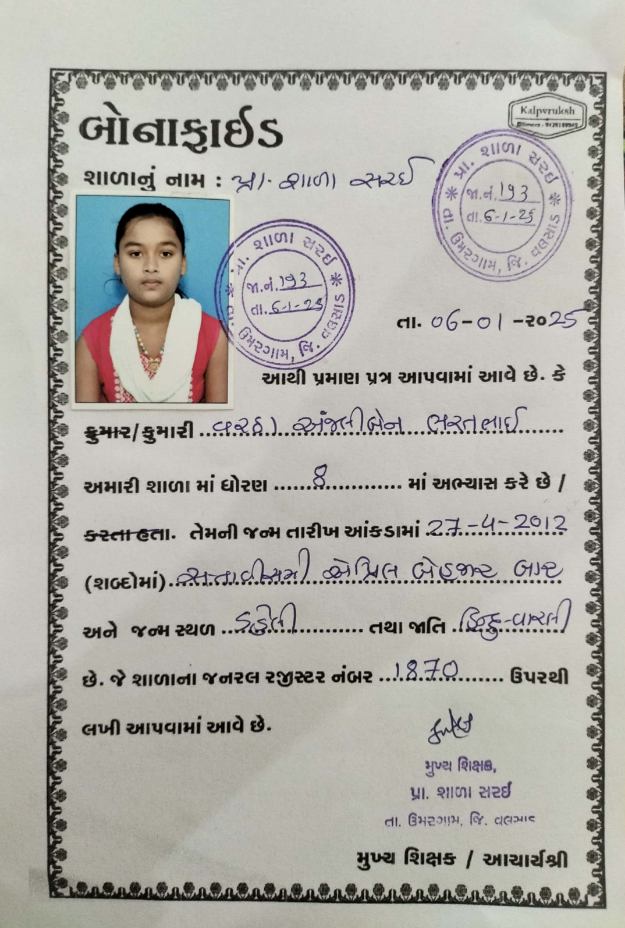 Kalpvruksh
બોનાફાઈડ
શાળાનું નામ : પ્રા. શાળા સરઈ
પ્રા. શાળા સરઈ
જા.નં. 193
તા. 6-1-25
તા. ઉમરગામ, જિ. વલસાડ
પ્રા. શાળા સરઈ
જા.નં. 193
તા. 6-1-25
તા. ઉમરગામ, જિ. વલસાડ
તા. 06-01-2025
આથી પ્રમાણ પત્ર આપવામાં આવે છે. કે
કુમાર/કુમારી વરઠા અંજલીબેન ભરતભાઈ
અમારી શાળા માં ધોરણ 8 માં અભ્યાસ કરે છે /
કરતા હતા. તેમની જન્મ તારીખ આંકડામાં 27-4-2012
(શબ્દોમાં) સતાવીસમી એપ્રિલ બેહજાર બાર
અને જન્મ સ્થળ ડહેલી તથા જાતિ હિન્દુ-વારલી
છે. જે શાળાના જનરલ રજીસ્ટર નંબર 1870 ઉપરથી
લખી આપવામાં આવે છે.
મુખ્ય શિક્ષક,
પ્રા. શાળા સરઈ
તા. ઉમરગામ, જિ. વલસાડ
મુખ્ય શિક્ષક / આચાર્યશ્રી